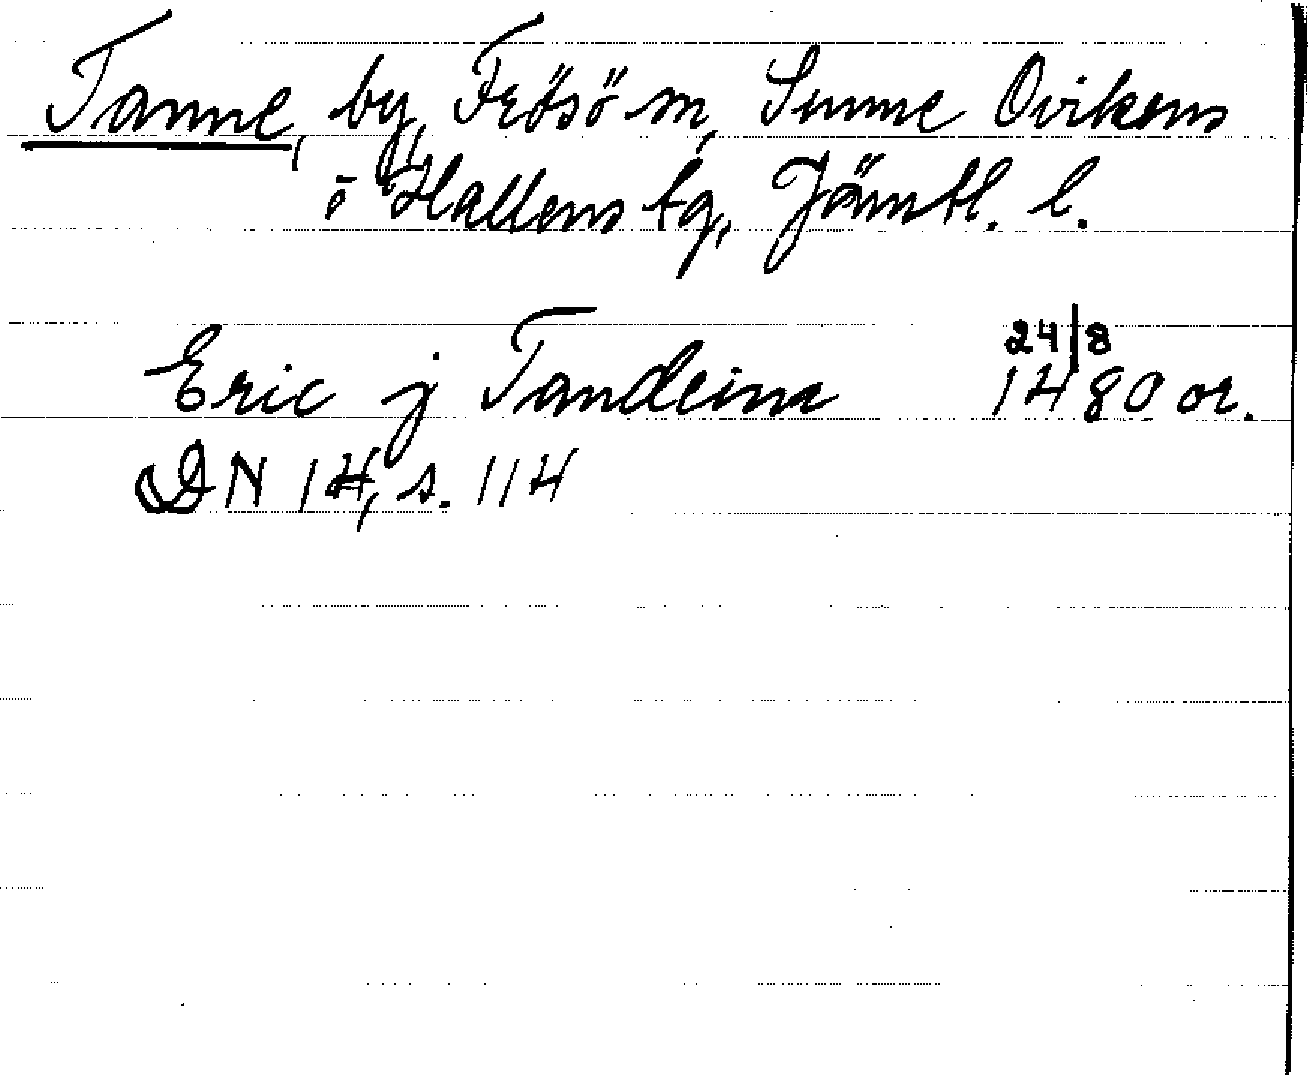 Tanne, by, Frösö sn, Sunne Ovikens
o Hallens tg, Jämtl. l.
24/8
Eric j Tandeina 1480 or.
DN 14, s. 114